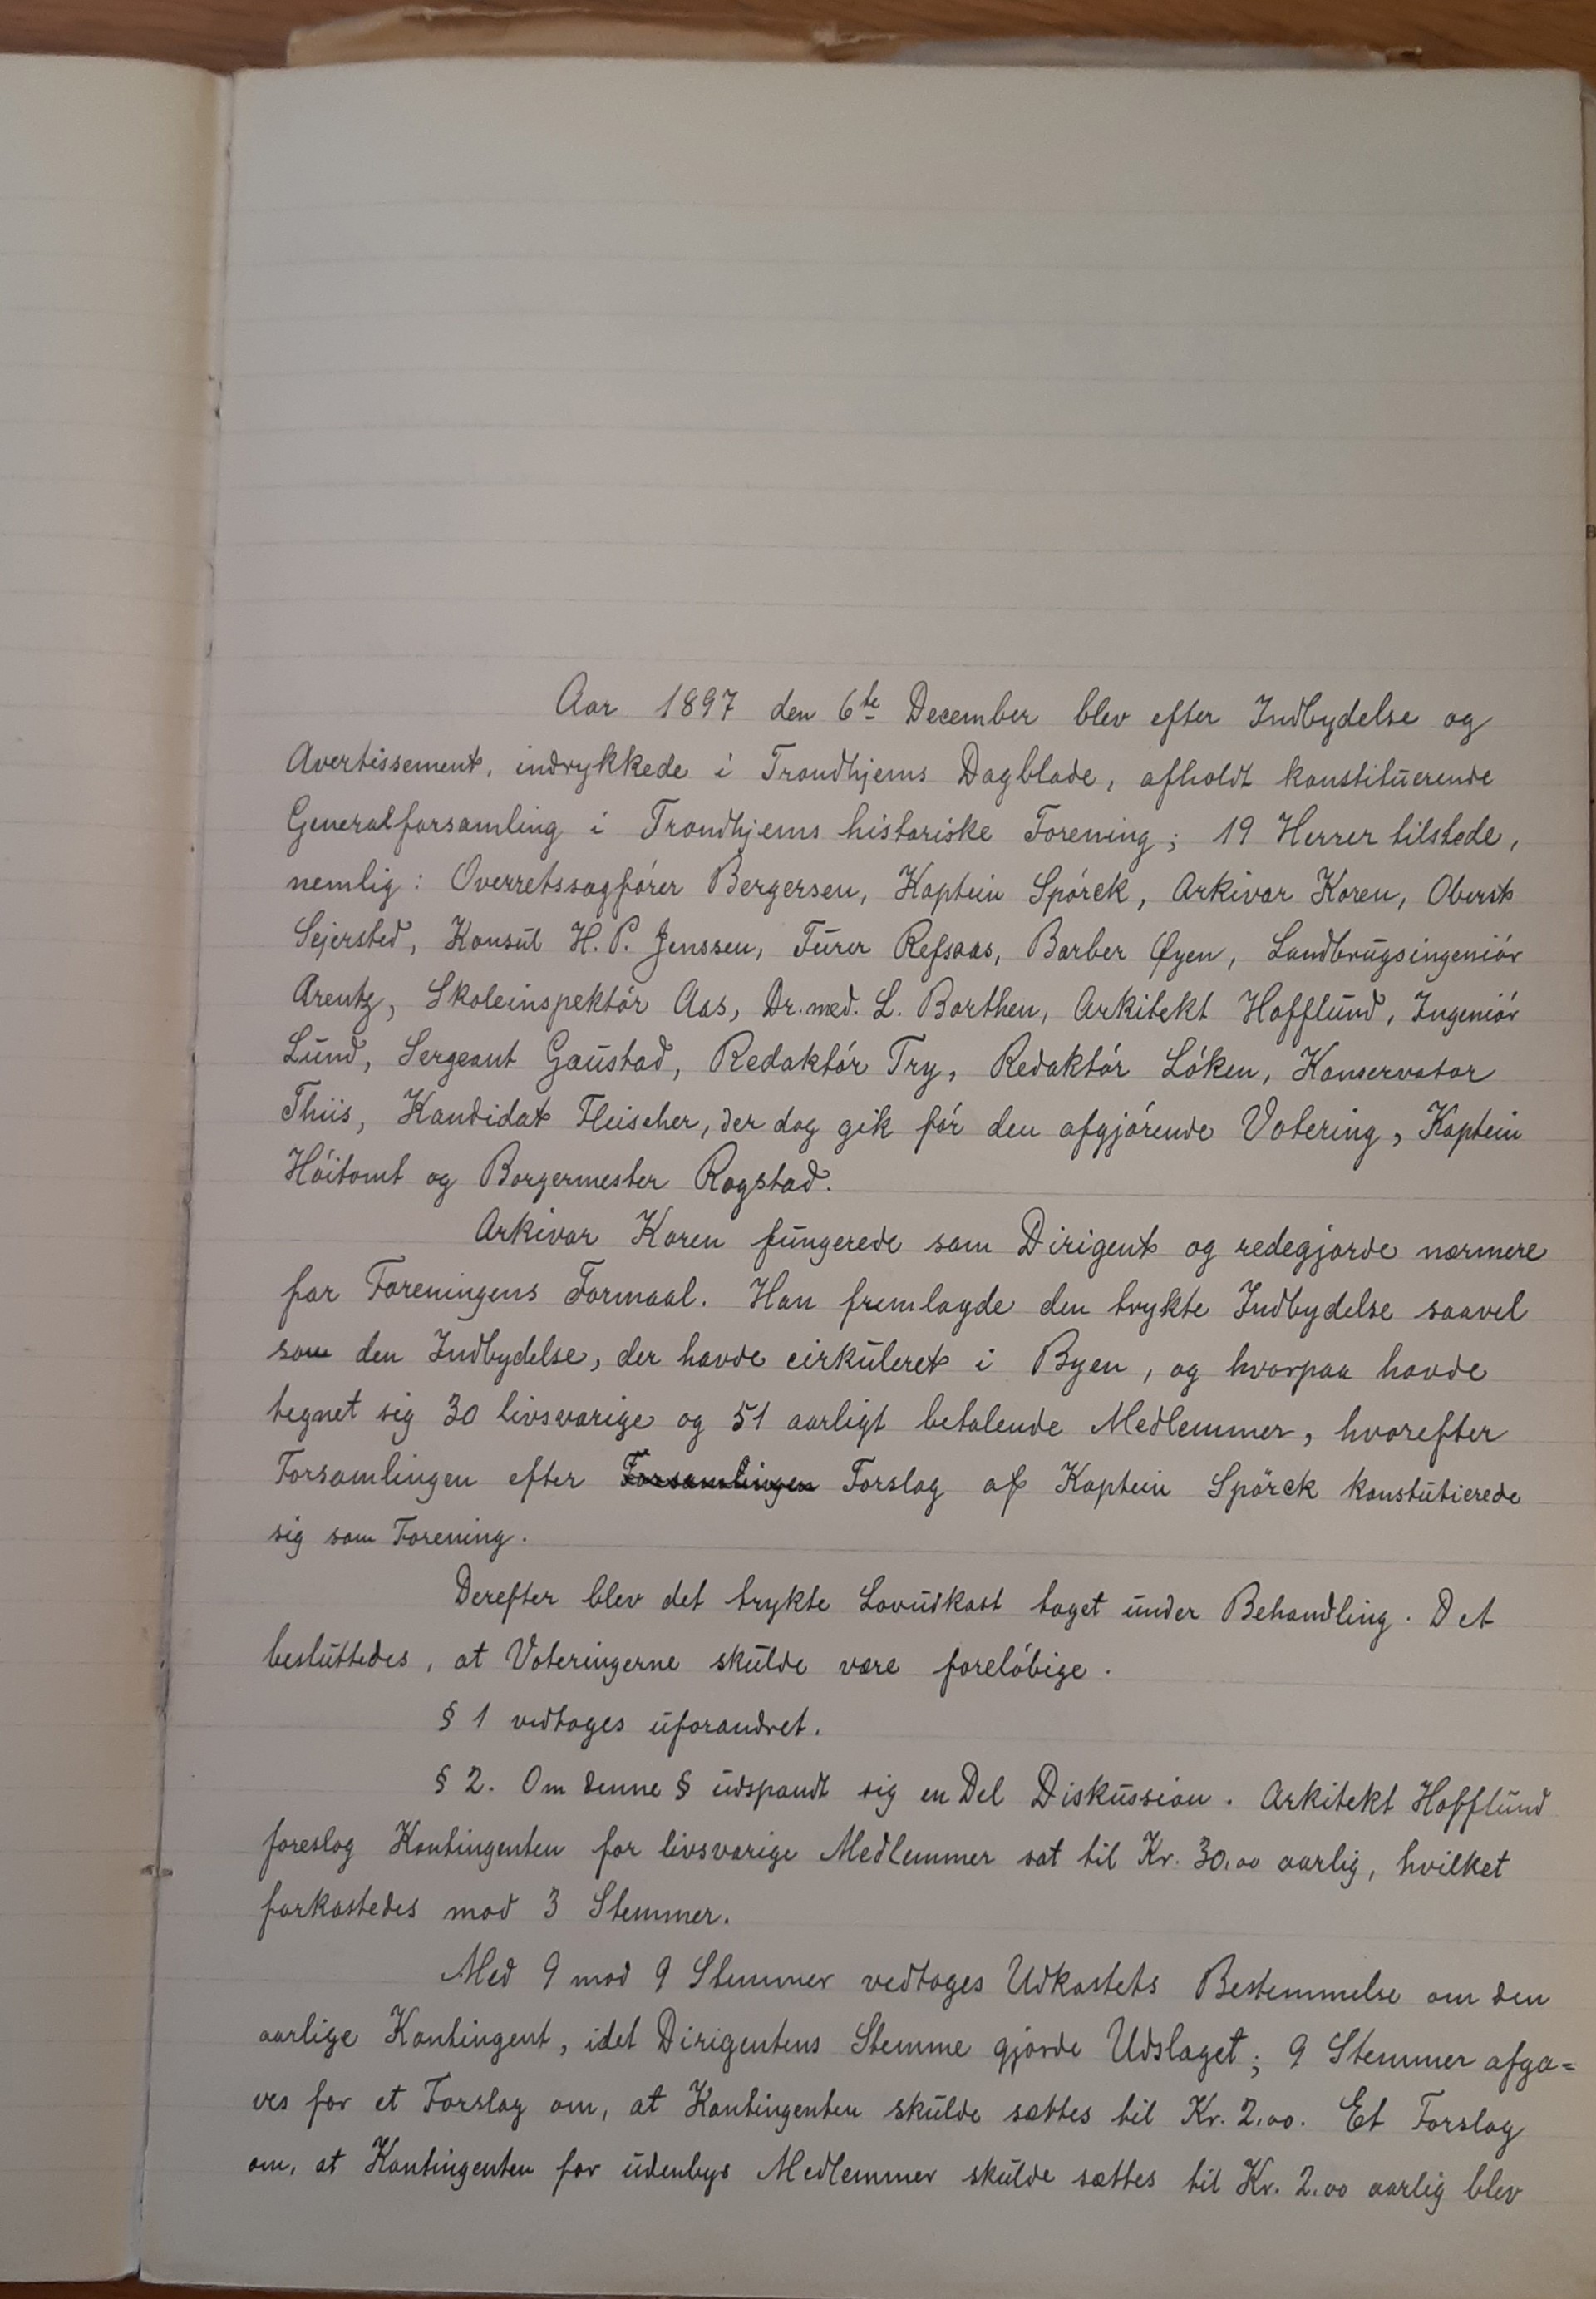 Aar 1897 den 6te December blev efter Indbydelse og
Avertissement, indrykkede i Trondhjems Dagblade, afholdt konstituerende
Generalforsamling i Trondhjems historiske Forening; 19 Herrer tilstede,
nemlig: Overretssagfører Bergersen, Kaptein Spørck, Arkivar Koren, Oberst
Sejersted, Konsul H. P. Jenssen, Furer Refsaas, Barber Øyen, Landbrugsingeniør
Arentz, Skoleinspektør Aas, Dr. med. L. Borthen, Arkitekt Hofflund, Ingeniør
Lund, Sergeant Gaustad, Redaktør Try, Redaktør Løken, Konservator
Thiis, Kandidat Fleischer, der dog gik før den afgjørende Votering, Kaptein
Høitomt og Borgermester Rogstad.
Arkivar Koren fungerede som Dirigent og redegjorde nærmere
for Foreningens Formaal. Han fremlagde den trykte Indbydelse saavel
som den Indbydelse, der havde cirkuleret i Byen, og hvorpaa havde
tegnet sig 30 livsvarige og 51 aarligt betalende Medlemmer, hvorefter
Forsamlingen efter Forsamlingen Forslag af Kaptein Spørck konstutierede
sig som Forening.
Derefter blev det trykte Lovudkast taget under Behandling. Det
besluttedes, at Voteringerne skulde være foreløbige.
§ 1 vedtoges uforandret.
§ 2. Om denne § udspandt sig en Del Diskussion. Arkitekt Hofflund
foreslog Kontingenten for livsvarige Medlemmer sat til Kr. 30.00 aarlig, hvilket
forkastedes mod 3 Stemmer.
Med 9 mod 9 Stemmer vedtoges Udkastets Bestemmelse om den
aarlige Kontingent, idet Dirigentens Stemme gjorde Udslaget; 9 Stemmer afga=
ves for et Forslag om, at Kontingenten skulde sættes til Kr. 2.00. Et Forslag
om, at Kontingenten for udenbys Medlemmer skulde sættes til Kr. 2.00 aarlig blev